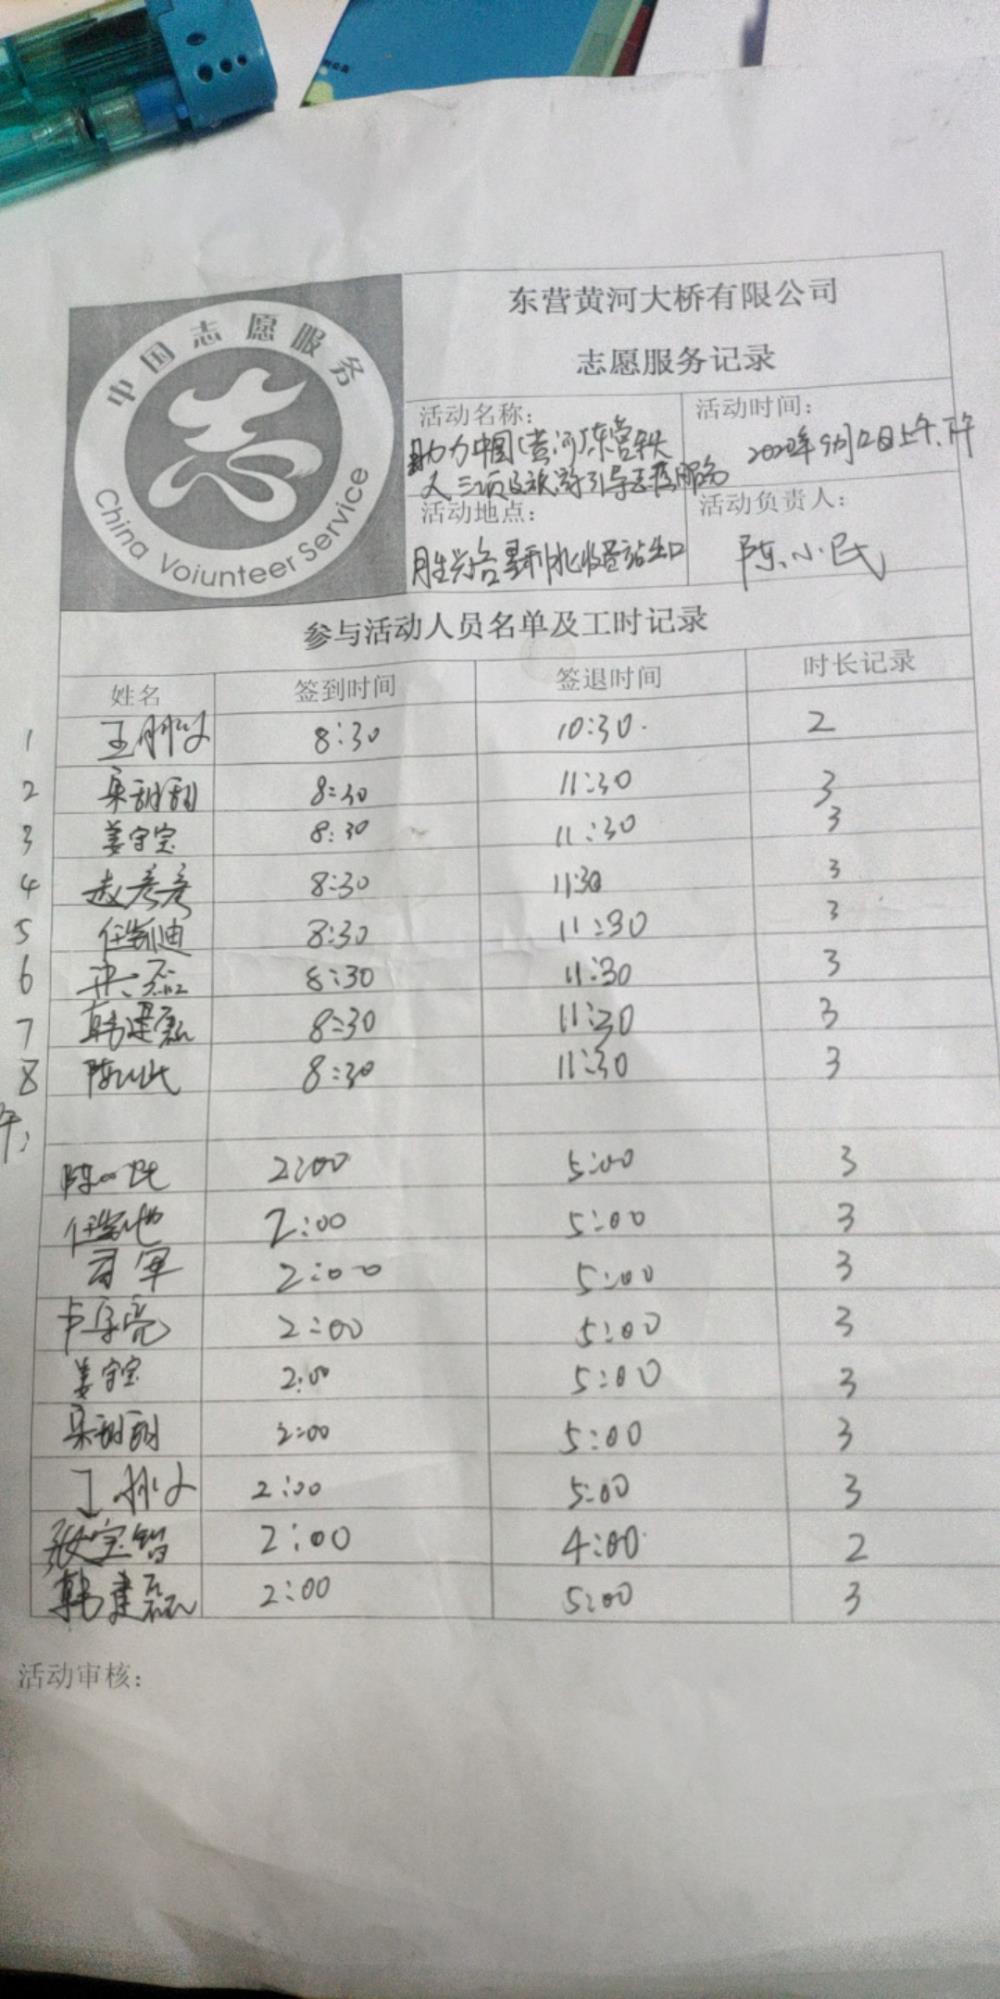 中国志愿服务
志
China Voiunteer Service
东营黄河大桥有限公司
志愿服务记录
活动名称：
助力中国(黄河)东营铁
人三项及旅游引导志愿服务
活动时间：
9月12日上午.下午
活动地点：
收费站出口
活动负责人：
陈小民
参与活动人员名单及工时记录
姓名 签到时间 签退时间 时长记录
1 8:30 10:30 2
2 8:30 11:30 3
3 姜守宝 8:30 11:30 3
4 8:30 11:30 3
5 任凯迪 8:30 11:30 3
6 8:30 11:30 3
7 韩建磊 8:30 11:30 3
8 陈小民 8:30 11:30 3
午：
陈小民 2:00 5:00 3
任凯迪 2:00 5:00 3
司军 2:00 5:00 3
2:00 5:00 3
姜守宝 2:00 5:00 3
2:00 5:00 3
2:00 5:00 3
张宝智 2:00 4:00 2
韩建磊 2:00 5:00 3
活动审核：